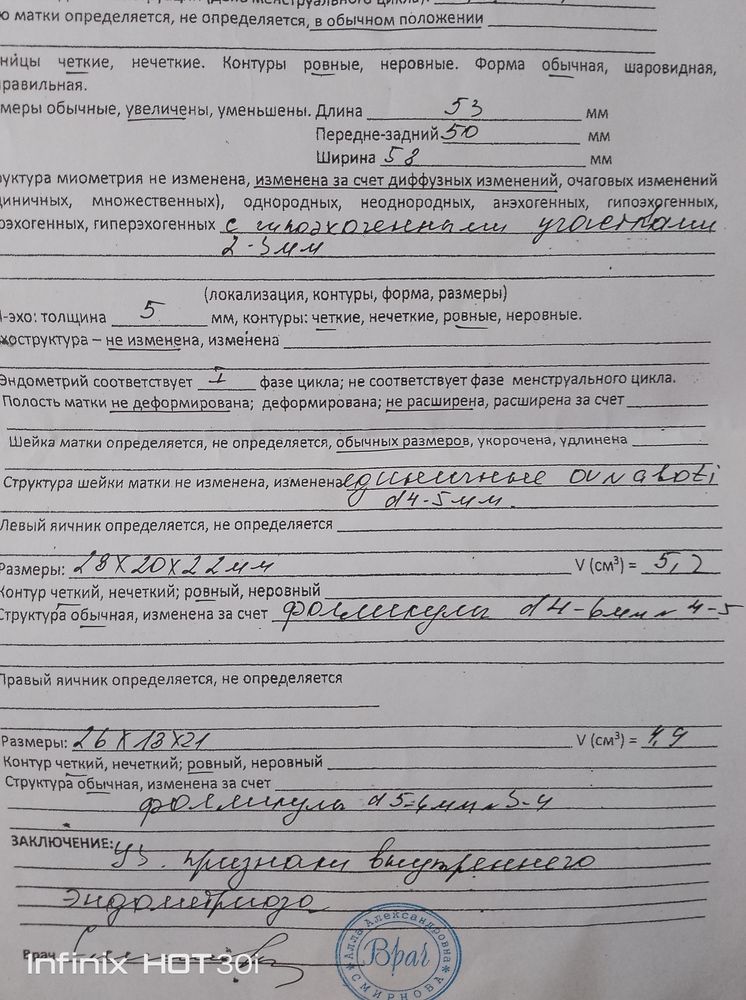 ю матки определяется, не определяется, в обычном положении
ницы четкие, нечеткие. Контуры ровные, неровные. Форма обычная, шаровидная,
равильная.
меры обычные, увеличены, уменьшены. Длина 53 мм
Передне-задний 50 мм
Ширина 58 мм
руктура миометрия не изменена, изменена за счет диффузных изменений, очаговых изменений
диничных, множественных), однородных, неоднородных, анэхогенных, гипоэхогенных,
оэхогенных, гиперэхогенных с гипоэхогенными участками
2-3мм
(локализация, контуры, форма, размеры)
М-эхо: толщина 5 мм, контуры: четкие, нечеткие, ровные, неровные.
хоструктура – не изменена, изменена
Эндометрий соответствует I фазе цикла; не соответствует фазе менструального цикла.
Полость матки не деформирована; деформирована; не расширена, расширена за счет
Шейка матки определяется, не определяется, обычных размеров, укорочена, удлинена
Структура шейки матки не изменена, изменена единичные ov naboti
d4-5мм.
Левый яичник определяется, не определяется
Размеры: 28х20х22мм V (см³) = 5,2
Контур четкий, нечеткий; ровный, неровный
Структура обычная, изменена за счет фолликулы d4-6мм n 4-5
Правый яичник определяется, не определяется
Размеры: 26х13х21 V (см³) = 4,9
Контур четкий, нечеткий; ровный, неровный
Структура обычная, изменена за счет
фолликулы d5-6мм n 3-4
ЗАКЛЮЧЕНИЕ: УЗ. признаки внутреннего
эндометриоза
Врач
Алла Александровна
Врач
СМИРНОВА
Infinix HOT 30i